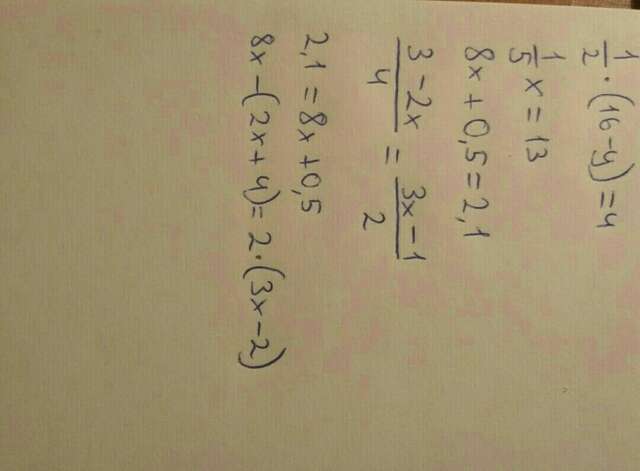 1/2 · (16-y) = 4
1/5 x = 13
8x + 0,5 = 2,1
3-2x/4 = 3x-1/2
2,1 = 8x + 0,5
8x - (2x + 4) = 2 · (3x - 2)